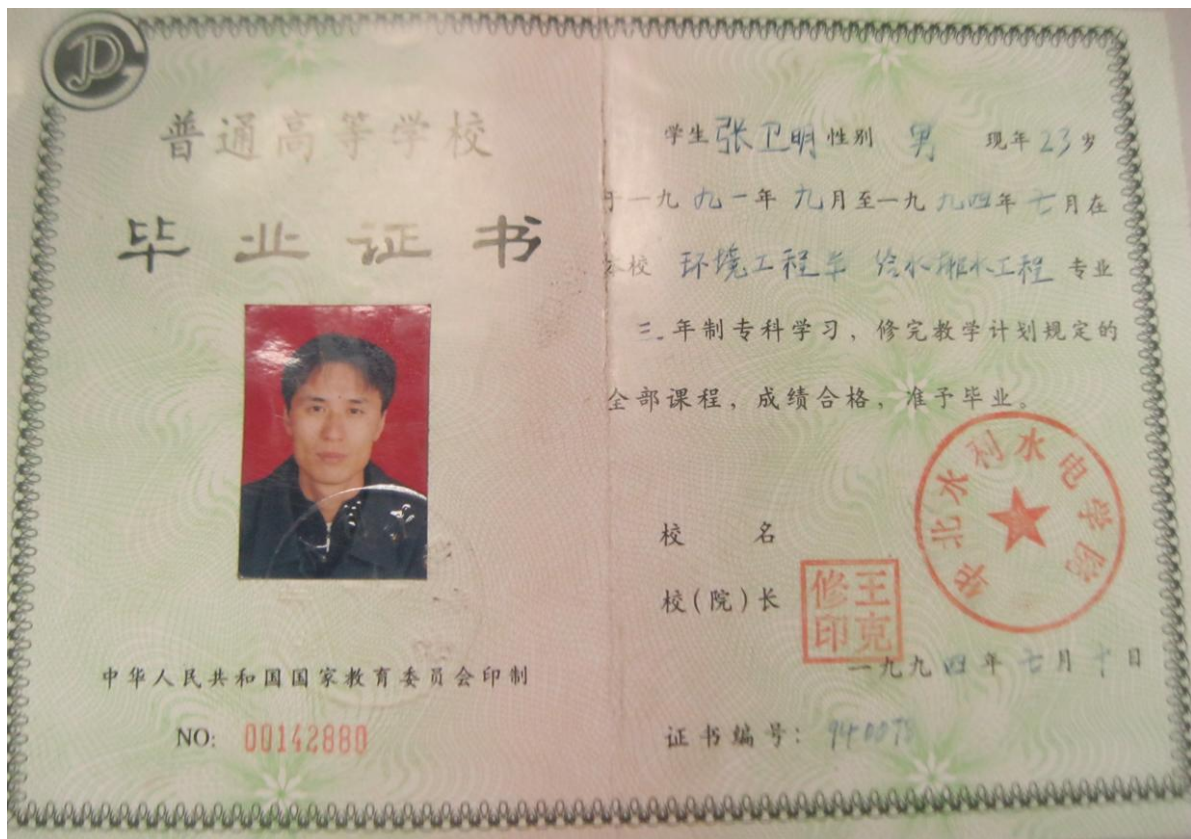 普通高等学校
毕业证书
中华人民共和国国家教育委员会印制
NO: 00142880
学生 张卫明 性别 男 现年 23 岁
于一九九一年九月至一九九四年七月在
本校 环境工程系 给水排水工程 专业
三年制专科学习，修完教学计划规定的
全部课程，成绩合格，准予毕业。
华北水利水电学院
校 名
校(院)长
王克修印
一九九四年七月十日
证书编号：